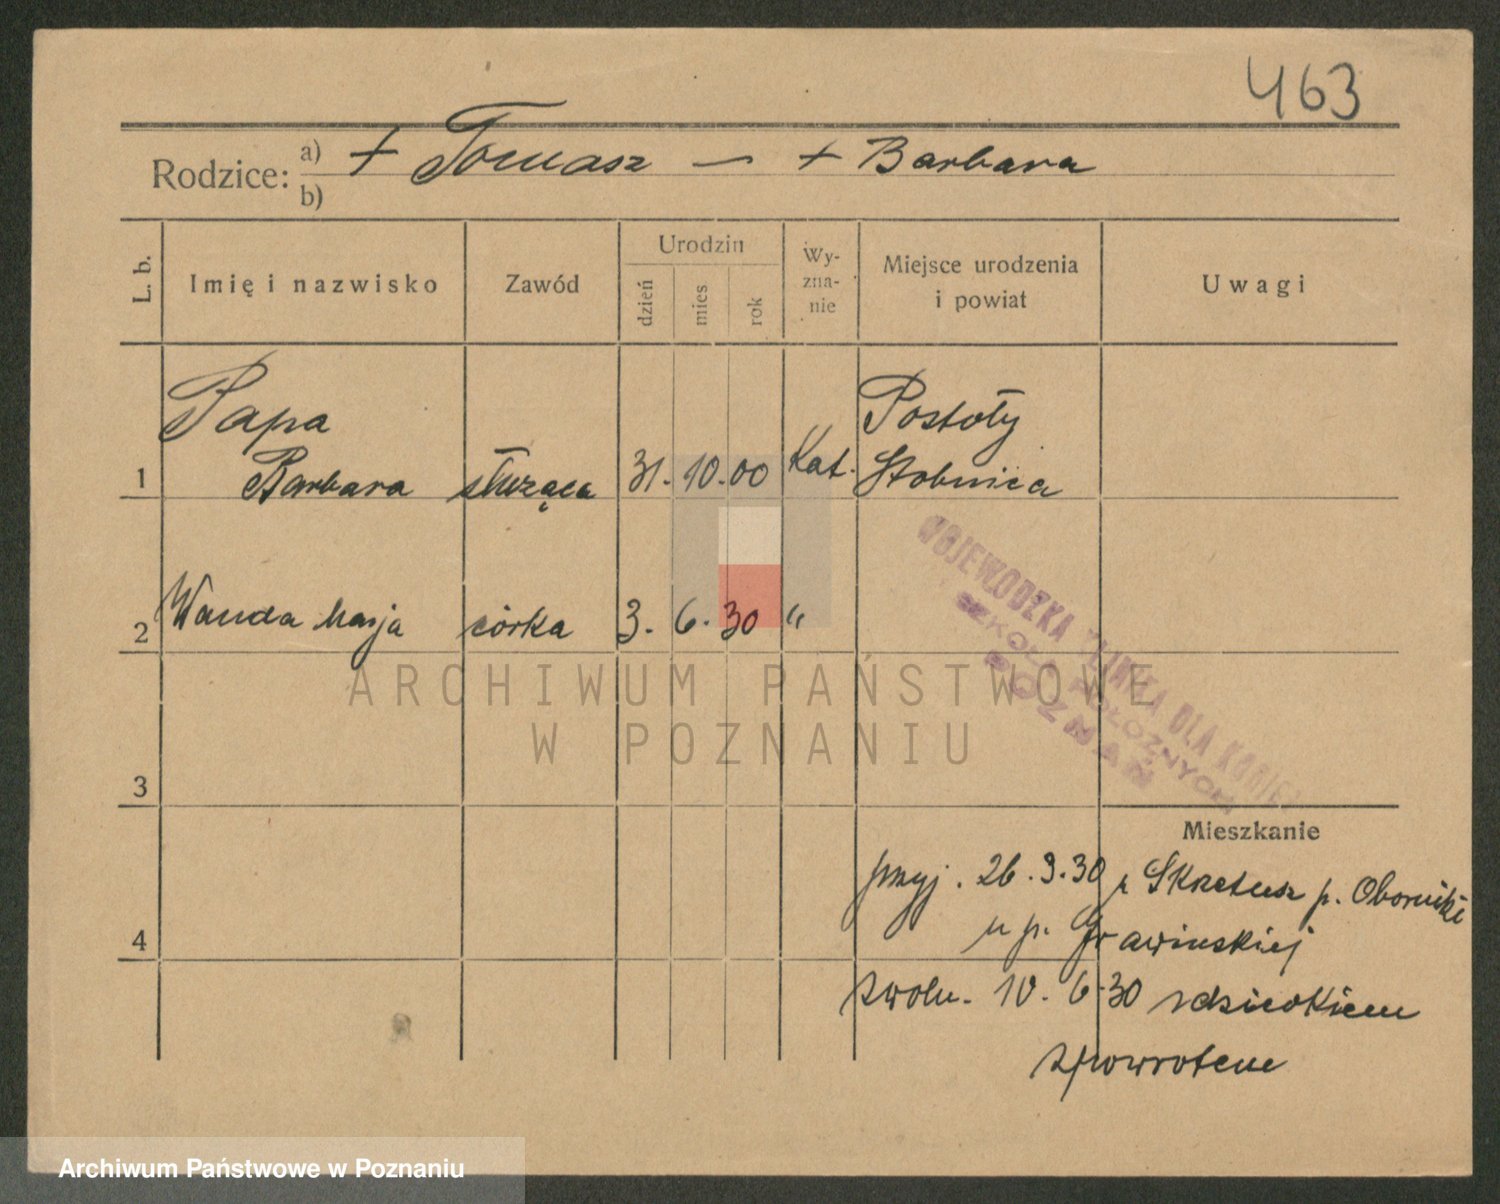 463
Rodzice: a) + Tomasz — + Barbara
b)
L. b. Imię i nazwisko Zawód Urodzin dzień mies rok Wy-zna-nie Miejsce urodzenia i powiat Uwagi
Papa Postoły
1 Barbara służąca 31. 10. 00 Kat. Stobnica
2 Wanda Marja córka 3. 6. 30 "
WOJEWÓDZKA KLINIKA DLA KOBIET
SZKOŁA POŁOŻNYCH
POZNAŃ
ARCHIWUM PAŃSTWOWE
W POZNANIU
3
Mieszkanie
przyj. 26. 3. 30 z Skrzetusz p. Oborniki
4 u p. Grawinskiej
zwoln. 10. 6. 30 z dzieckiem
zpowrotem
Archiwum Państwowe w Poznaniu